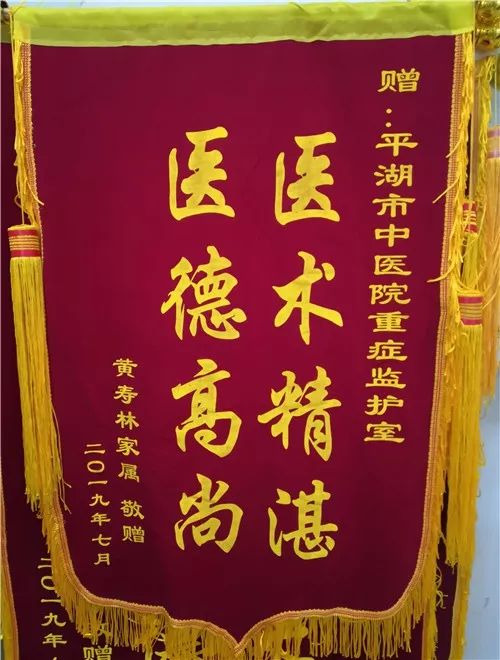 赠:平湖市中医院重症监护室
医术精湛
医德高尚
黄寿林家属 敬赠
二〇一九年七月
二〇一九年
赠